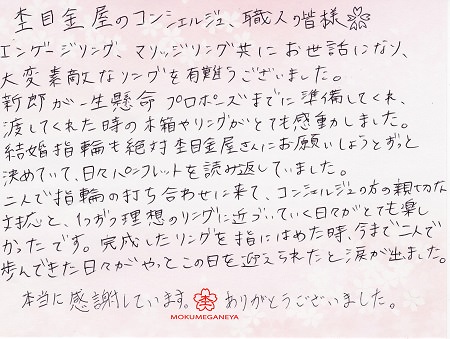 杢目金屋のコンシェルジュ、職人の皆様
エンゲージリング、マリッジリング共にお世話になり、
大変素敵なリングを有難うございました。
新郎が一生懸命プロポーズまでに準備してくれ、
渡してくれた時の木箱やリングがとても感動しました。
結婚指輪も絶対杢目金屋さんにお願いしようとずっと
決めていて、日々パンフレットを読み返していました。
二人で指輪の打ち合わせに来て、コンシェルジュの方の親切な
対応と、1つずつ理想のリングに近づいていく日々がとても楽し
かったです。完成したリングを指にはめた時、今まで二人で
歩んできた日々がやっとこの日を迎えられたと涙が出ました。
本当に感謝しています。ありがとうございました。
MOKUMEGANEYA